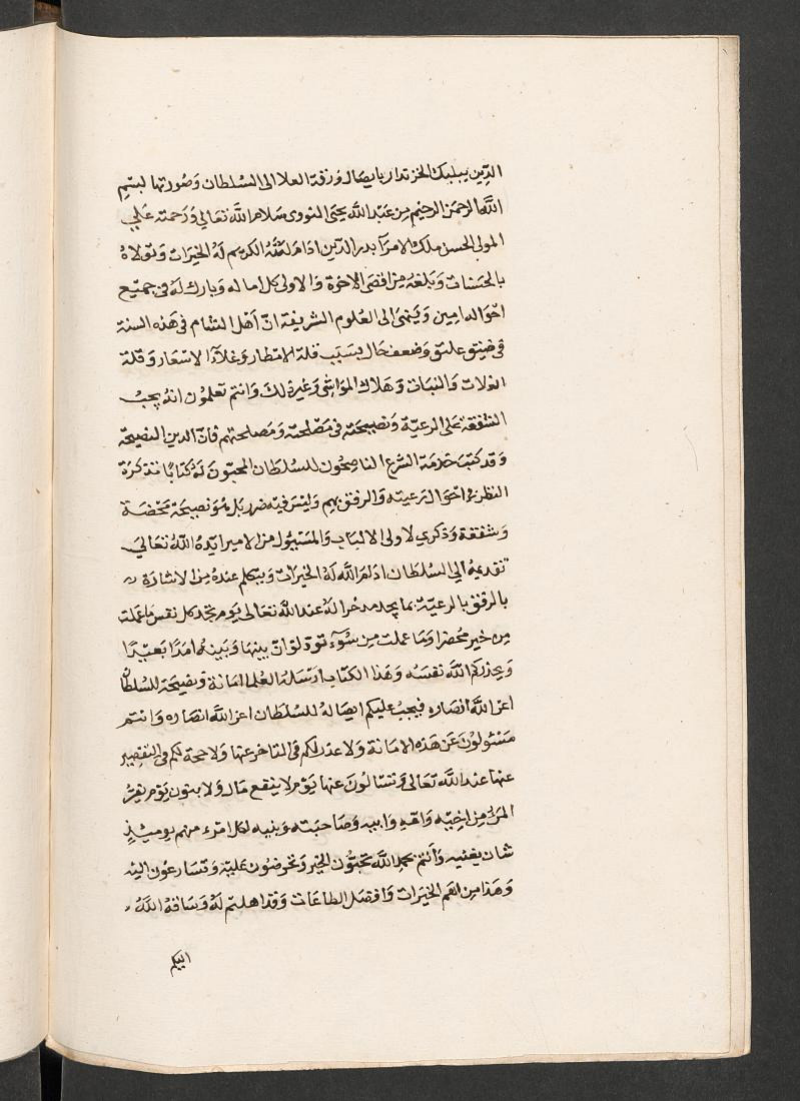 الدين بيلبك الخزندار بايصال ورقة العلا الى السلطان وصورتها بسم
الله الرحمن الرحيم من عبد الله يحيى النووى سلام الله تعالى ورحمته على
المولى المحسن ملك الامرآ بدر الدين ادام الله الكريم له الخيرات وتولاه
بالحسنات وبلغه من اقصى الاخرة والاولى كل اماله وبارك له فى جميع
احواله امين وينهى الى العلوم الشريفة ان اهل الشام فى هذه السنة
فى ضيق عيش وضعف حال بسبب قلة الامطار وغلآء الاسعار وقلة
الغلات والنبات وهلاك المواشى وغير ذلك وانتم تعلمون انه يجب
الشفقة على الرعية ونصيحته فى مصلحته ومصلحتهم فان الدين النصيحة
وقد كتب خدمة الشرع الناصحون للسلطان المحبون له كتابا بتذكرة
النظر فى احوال رعيته والرفق بهم وليس فيه ضرر بل هو نصيحة محضة
وشفقة وذكرى لاولى الالباب والمسئول من الامير ايده الله تعالى
تقديمه الى السلطان ادام الله له الخيرات ويتكلم عنده من الاشارة
بالرفق بالرعية بما يجده مدخرا له عند الله تعالى يوم تجد كل نفس ما عملت
من خير محضرا وما عملت من سوء تود لو ان بينها وبينه امدا بعيدا
ويحذركم الله نفسه وهذا الكتاب ارسله العلما امانة ونصيحة للسلطان
اعز الله انصاره فيجب عليكم ايصاله للسلطان اعز الله انصاره وانتم
مسئولون عن هذه الامانة ولا عذر لكم فى التاخر عنها ولا حجة لكم فى التقصير
عنها عند الله تعالى وتسالون عنها يوم لا ينفع مال ولا بنون يوم يفر
المرء من اخيه وامه وابيه وصاحبته وبنيه لكل امرء منهم يومئذ
شان يغنيه وانتم بحمد الله تحبون الخير وتحرضون عليه وتسارعون اليه
وهذا من اهم الخيرات وافضل الطاعات وقد اهلتم له وساقه الله
اليكم